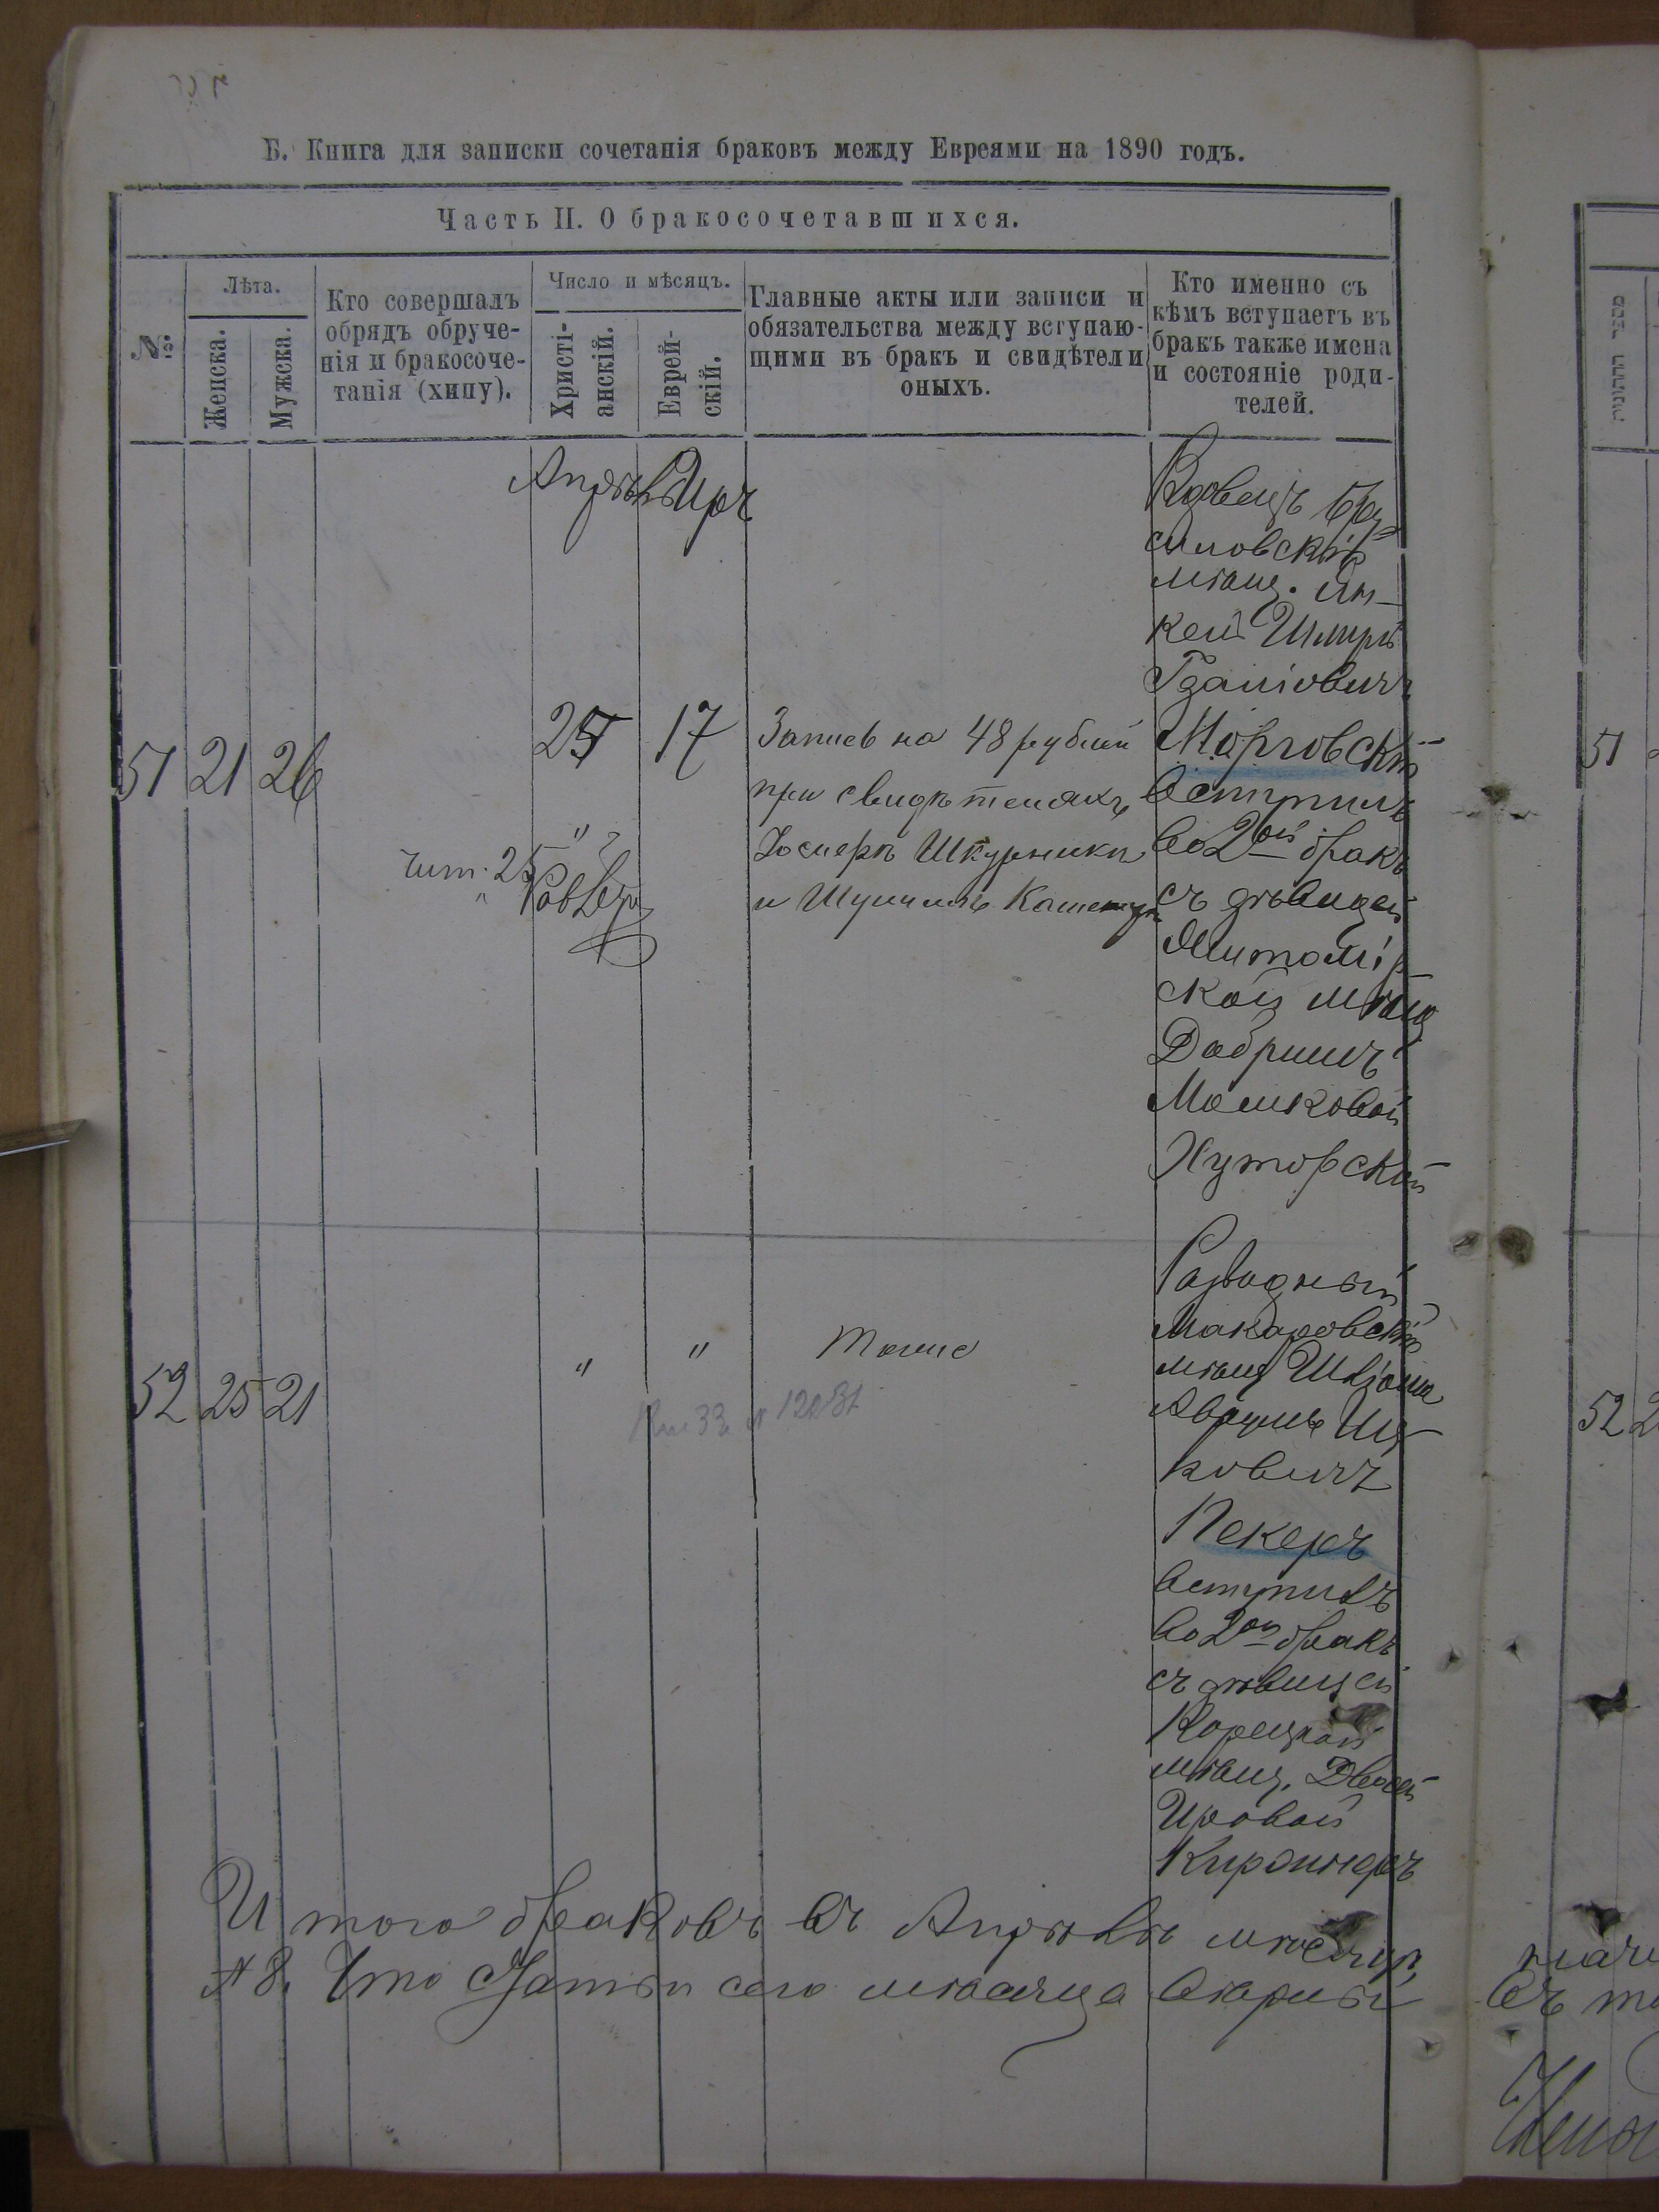 Б. Книга для записки сочетанія браковъ между Евреями на 1890 годъ.
Часть II. О бракосочетавшихся.
№
Лѣта.
Женска.
Мужска.
Кто совершалъ
обрядъ обруче-
нія и бракосоче-
танія (хипу).
Число и мѣсяцъ.
Христі-
анскій.
Еврей-
скій.
Главные акты или записи и
обязательства между вступаю-
щими въ бракъ и свидѣтели
оныхъ.
Кто именно съ
кѣмъ вступаетъ въ
бракъ также имена
и состояніе роди-
телей.
Апрѣль
Иръ
51
21
26
25
17
чит. 25
Запись на 48 рублей
при свидѣтеляхъ
Іосперъ Шкурника
и Шулимъ
Вдовецъ Бру-
силовскій
мѣщ. Ян-
кель Шмиръ
Морговскій
вступилъ
во 2ой бракъ
съ дѣвицей
Житомір-
ской мѣщ
Добришъ
Мошковой
Хуторской
52
25
21
"
"
Тоже
Разводный
Макаровскій
мѣщ Шліома
Аврумъ Иц-
ковичъ
Пекеръ
вступилъ
во 2ой бракъ
съ дѣвицей
Корецкой
мѣщ. Двосей
Ировой
Киржнеръ
Итого браковъ въ Апрѣлѣ мѣсяцѣ
№ 8. Что статьи сего мѣсяца вѣрны
מספר החתונות
51
52